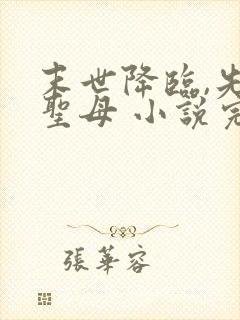 末世降臨,先
聖母 小說完
張華容